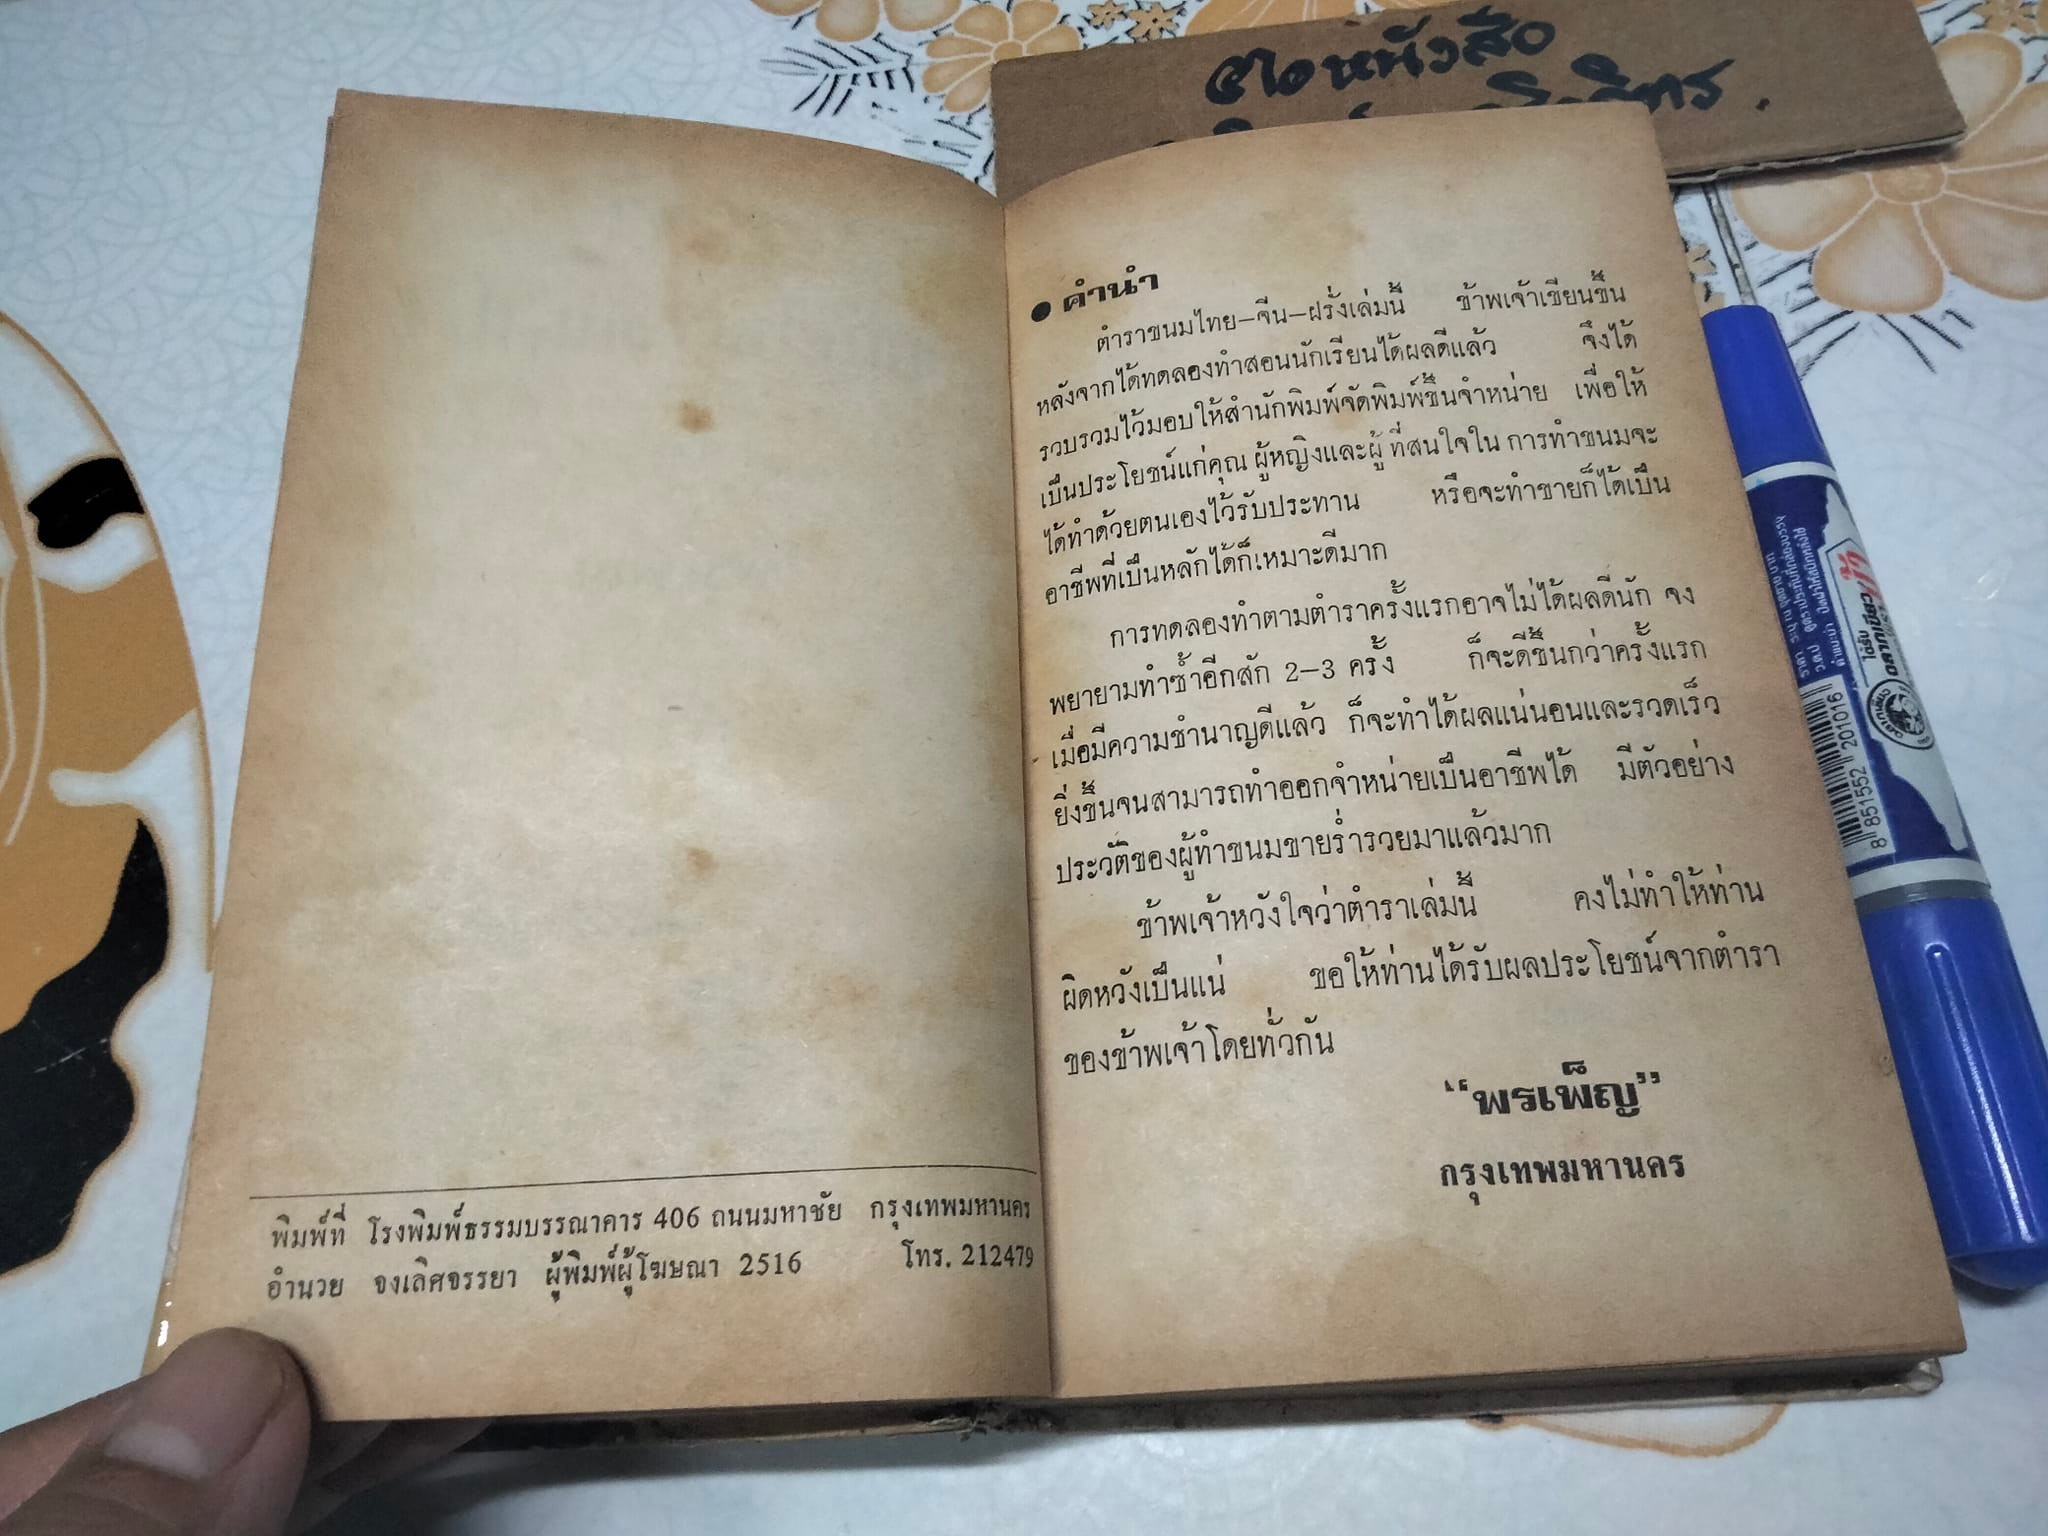 ขอหนังสือ
พิมพ์ที่ โรงพิมพ์ธรรมบรรณาคาร 406 ถนนมหาชัย กรุงเทพมหานคร
อำนวย จงเลิศจรรยา ผู้พิมพ์ผู้โฆษณา 2516 โทร. 212479
● คำนำ
ตำราขนมไทย–จีน–ฝรั่งเล่มนี้ ข้าพเจ้าเขียนขึ้น
หลังจากได้ทดลองทำสอนนักเรียนได้ผลดีแล้ว จึงได้
รวบรวมไว้มอบให้สำนักพิมพ์จัดพิมพ์ขึ้นจำหน่าย เพื่อให้
เป็นประโยชน์แก่คุณ ผู้หญิงและผู้ ที่สนใจใน การทำขนมจะ
ได้ทำด้วยตนเองไว้รับประทาน หรือจะทำขายก็ได้เป็น
อาชีพที่เป็นหลักได้ก็เหมาะดีมาก
การทดลองทำตามตำราครั้งแรกอาจไม่ได้ผลดีนัก จง
พยายามทำซ้ำอีกสัก 2–3 ครั้ง ก็จะดีขึ้นกว่าครั้งแรก
เมื่อมีความชำนาญดีแล้ว ก็จะทำได้ผลแน่นอนและรวดเร็ว
ยิ่งขึ้นจนสามารถทำออกจำหน่ายเป็นอาชีพได้ มีตัวอย่าง
ประวัติของผู้ทำขนมขายร่ำรวยมาแล้วมาก
ข้าพเจ้าหวังใจว่าตำราเล่มนี้ คงไม่ทำให้ท่าน
ผิดหวังเป็นแน่ ขอให้ท่านได้รับผลประโยชน์จากตำรา
ของข้าพเจ้าโดยทั่วกัน
“พรเพ็ญ”
กรุงเทพมหานคร
8 851552 201016